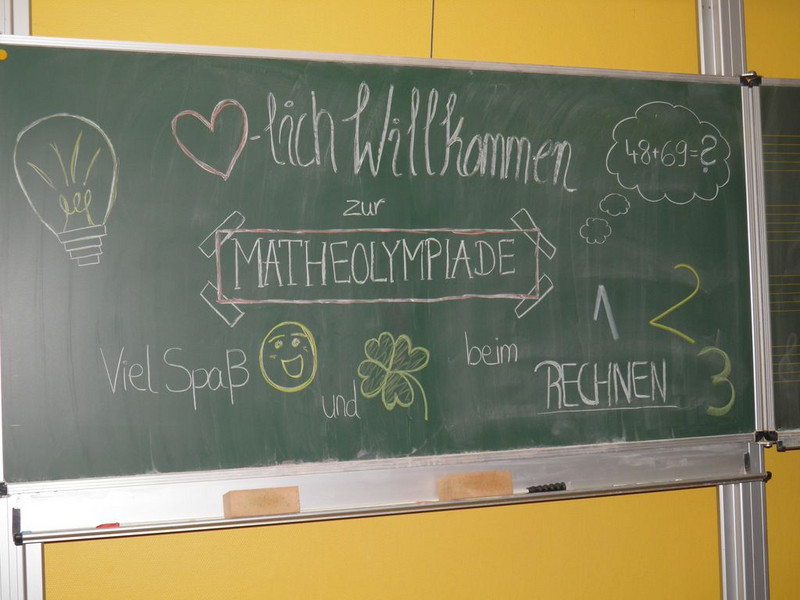 -lich Willkommen
48+69=?
zur
MATHEOLYMPIADE
1 2 3
Viel Spaß und beim RECHNEN